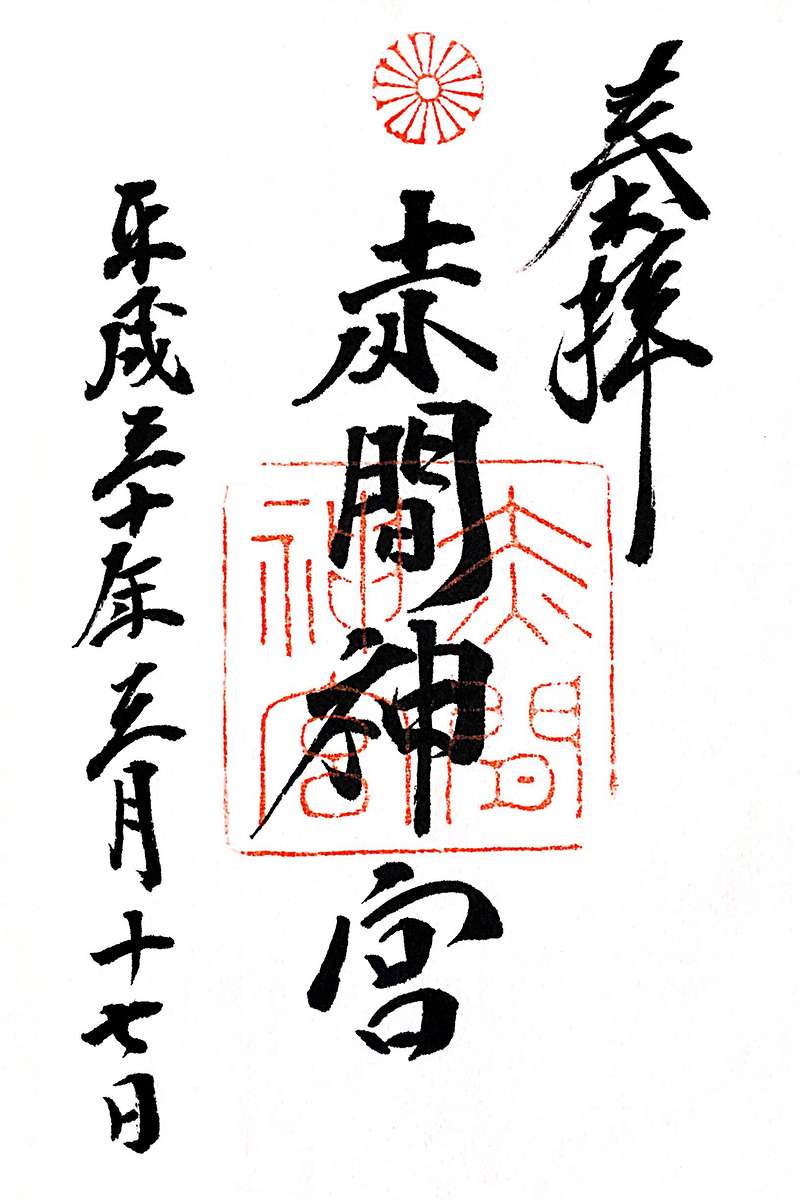 奉拝
赤間神宮
平成三十年三月十七日
赤間
神宮